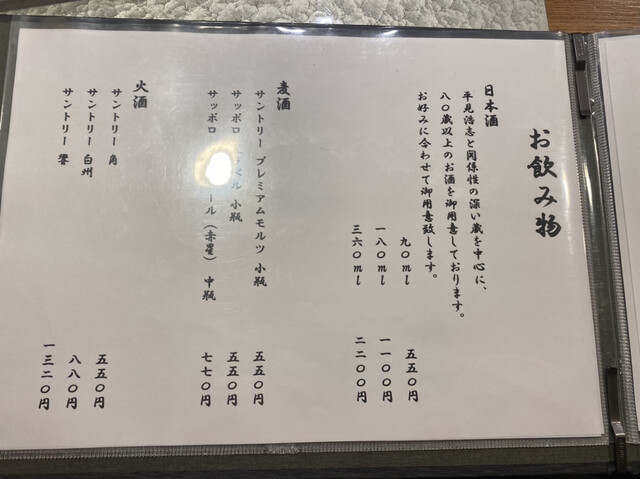 お飲み物
日本酒
平見浩志と関係性の深い蔵を中心に、
八〇歳以上のお酒を御用意しております。
お好みに合わせて御用意致します。
九〇ml 五五〇円
一八〇ml 一一〇〇円
三六〇ml 二二〇〇円
麦酒
サントリー プレミアムモルツ 小瓶 五五〇円
サッポロ ラベル 小瓶 五五〇円
サッポロ ール（赤星） 中瓶 七七〇円
火酒
サントリー 角 五五〇円
サントリー 白州 八八〇円
サントリー 響 一三二〇円